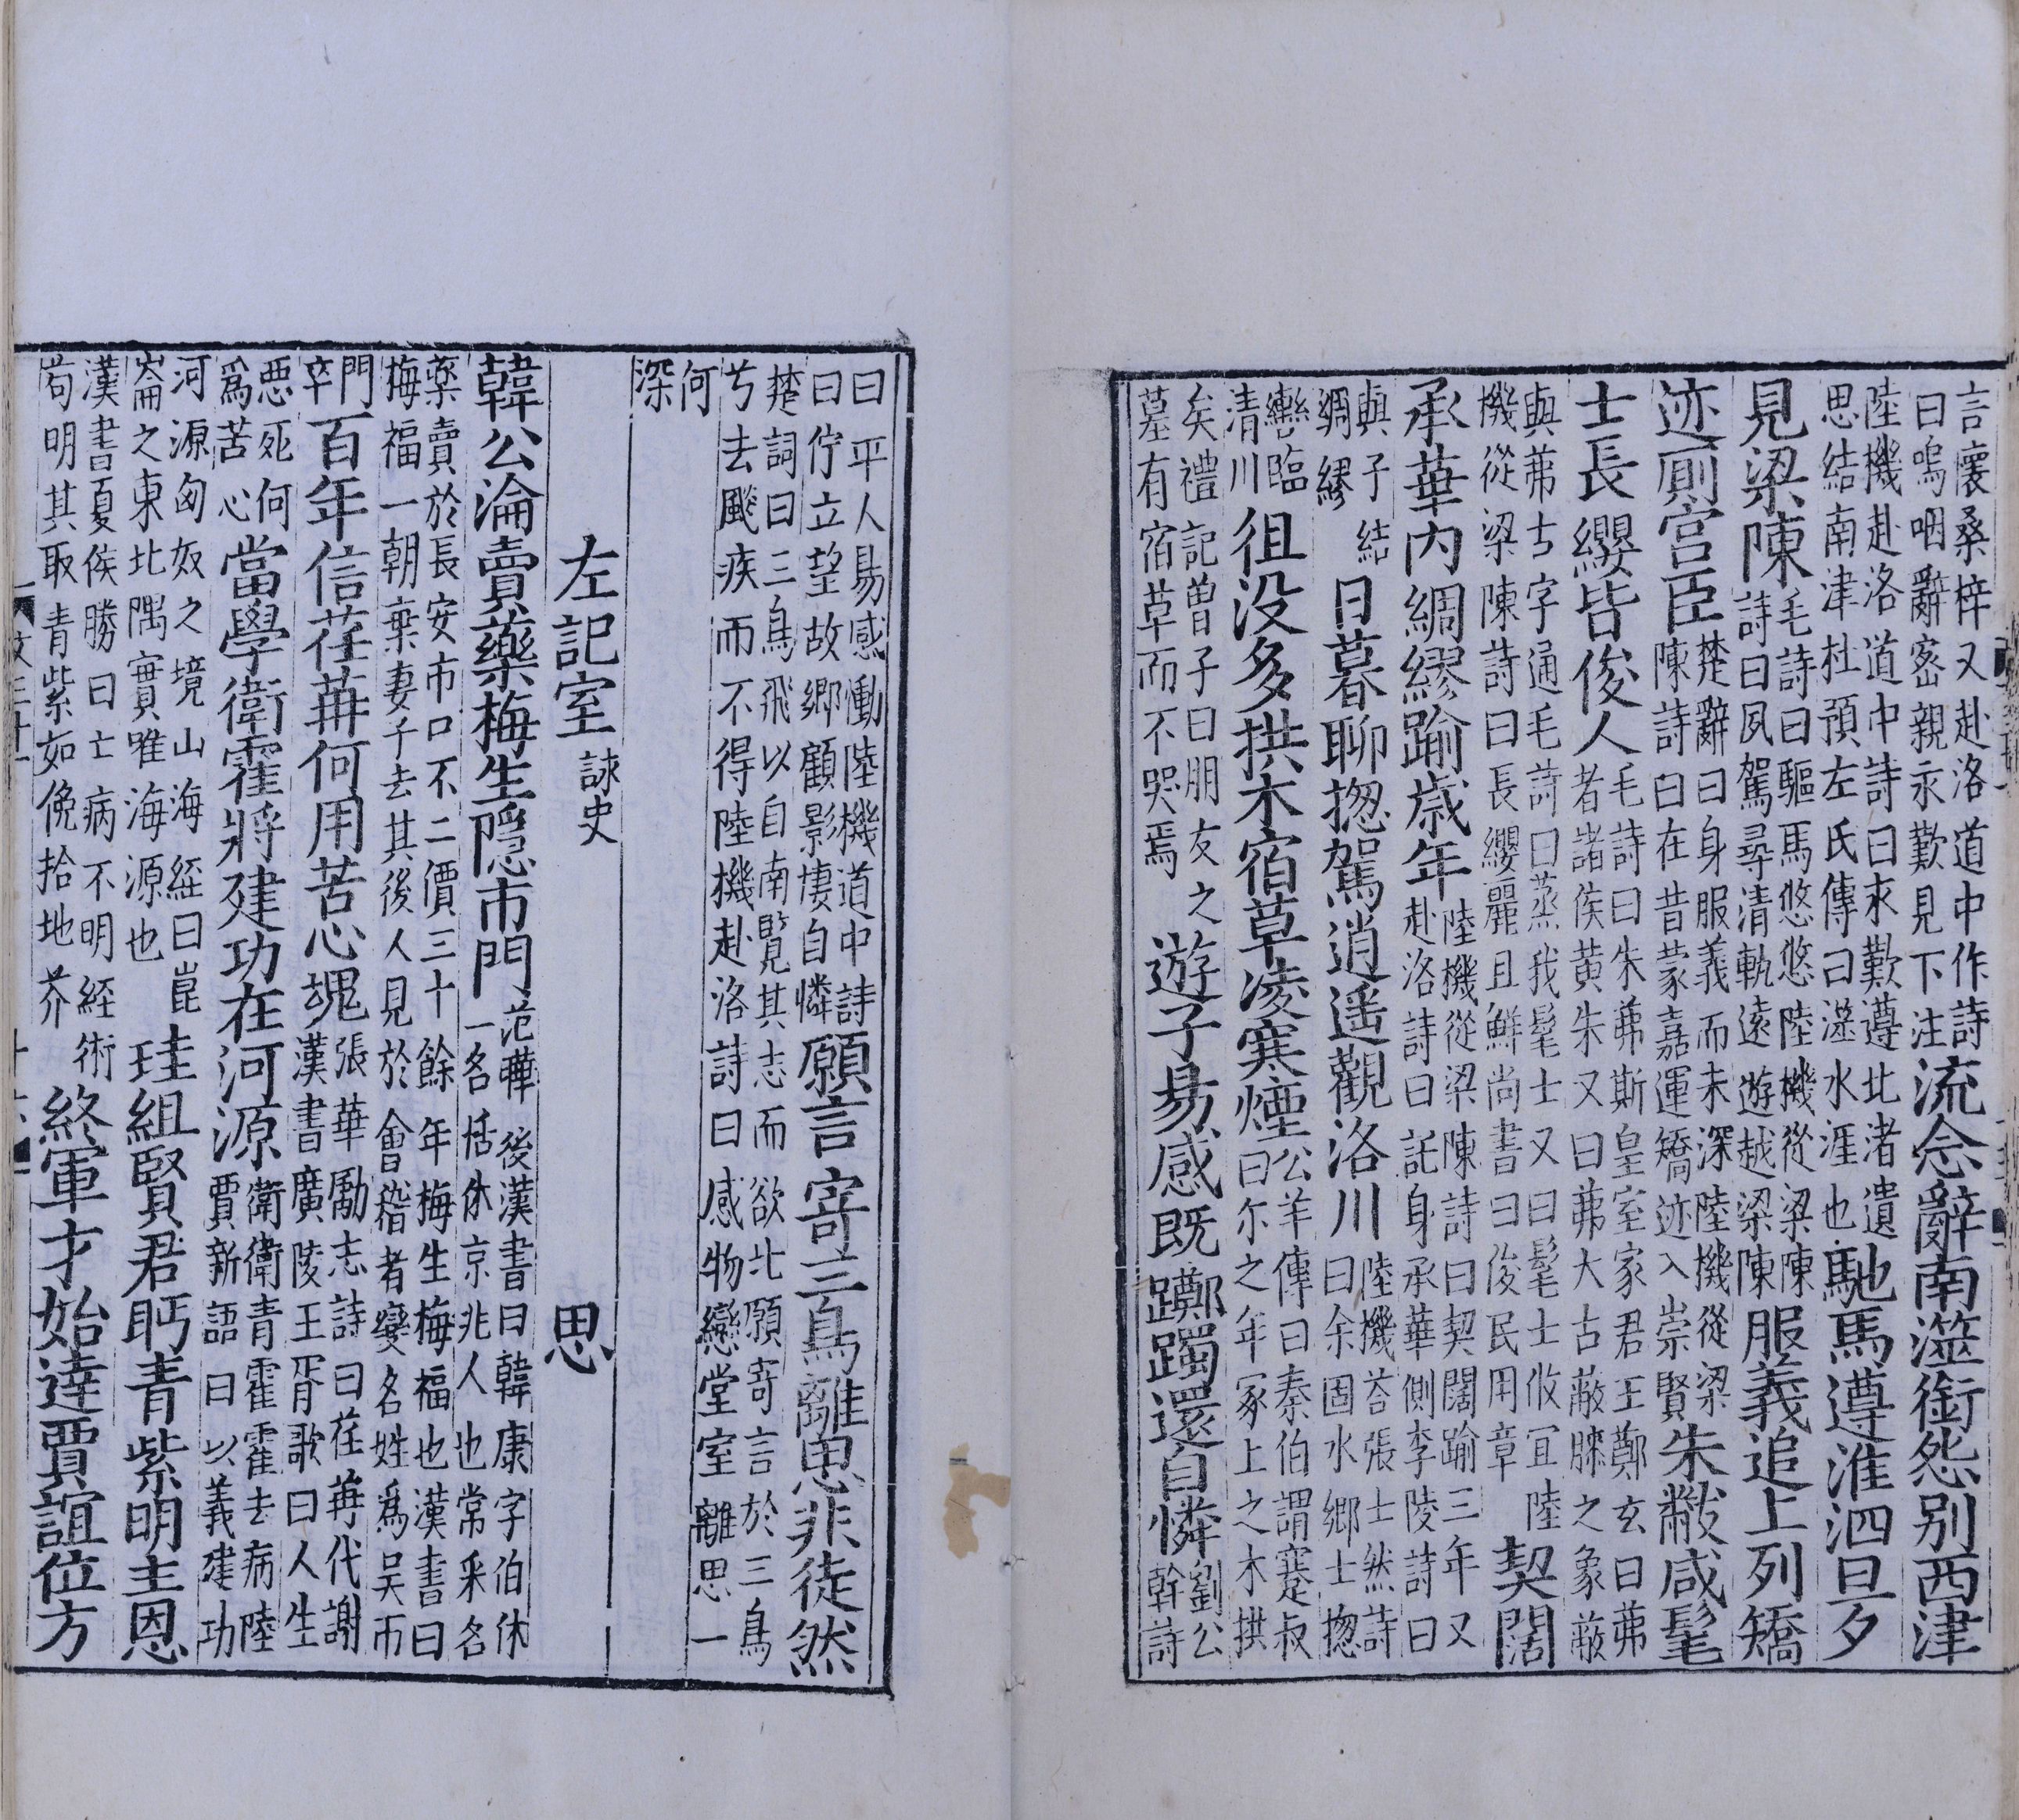 言懷桑梓又赴洛道中作詩曰嗚咽辭密親永歎見下注流念辭南澨銜怨别西津
陸機赴洛道中詩曰求歎遵北渚遺思結南津杜預左氏傳曰澨水涯也馳馬遵淮泗旦夕
見梁陳毛詩曰驅馬悠悠陸機從梁陳詩曰夙駕尋清軌遠遊越梁陳服義追上列矯
迹厠宫臣楚辭曰身服義而未深陸機從梁陳詩曰在昔蒙嘉運矯迹入崇賢朱黻咸髦
士長纓皆俊人毛詩曰朱茀斯皇室家君王鄭玄曰茀者諸侯黄朱又曰茀大古蔽膝之象蔽
與茀古字通毛詩曰蒸我髦士又曰髦士攸宜陸機從梁陳詩曰長纓麗且鮮尚書曰俊民用章契闊
承華内綢繆踰歲年陸機從梁陳詩曰契闊踰三年又赴洛詩曰託身承華側李陵詩曰
與子結綢繆日暮聊揔駕逍遥觀洛川陸機荅張士然詩曰余固水鄉士揔
轡臨清川徂没多拱木宿草凌寒煙公羊傳曰秦伯謂蹇叔曰尔之年冢上之木拱
矣禮記曾子曰朋友之墓有宿草而不哭焉遊子易感既躑躅還自憐劉公幹詩
曰平人易感慟陸機道中詩曰佇立望故鄉顧影悽自憐願言寄三鳥離思非徒然
楚詞曰三鳥飛以自南覽其志而欲北願寄言於三鳥兮去飈疾而不得陸機赴洛詩曰感物戀堂室離思一
何深
左記室詠史思
韓公淪賣藥梅生隱市門范曄後漢書曰韓康字伯休一名恬休京兆人也常采名
藥賣於長安市口不二價三十餘年梅生梅福也漢書曰梅福一朝棄妻子去其後人見於會稽者變名姓爲吴市
門卒百年信荏苒何用苦心塊張華勵志詩曰荏苒代謝漢書廣陵王胥歌曰人生
惡死何爲苦心當學衛霍將建功在河源衛衛青霍霍去病陸賈新語曰以義建功
河源匈奴之境山海經曰崑崙之東北隅實唯海源也珪組賢君眄青紫明主恩
漢書夏侯勝曰士病不明經術苟明其取青紫如俛拾地芥終軍才始達賈誼位方